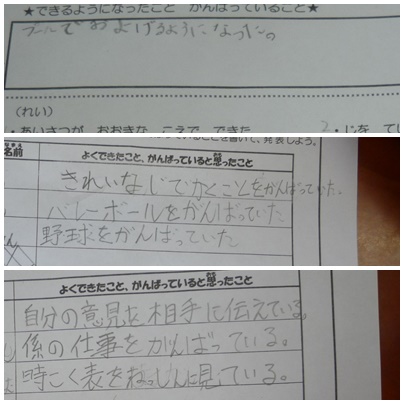 ★できるようになったこと がんばっていること★
プールでおよげるようになった。
(れい)
・あいさつが おおきな こえで できた
を書いて、発表しよう。
名前 よくできたこと、がんばっていると思ったこと
きれいなじでかくことをがんばっていた。
バレーボールをがんばっていた
野球をがんばっていた
よくできたこと、がんばっていると思ったこと
自分の意見を相手に伝えている。
係の仕事をがんばっている。
時こく表をねっしんに見ている。